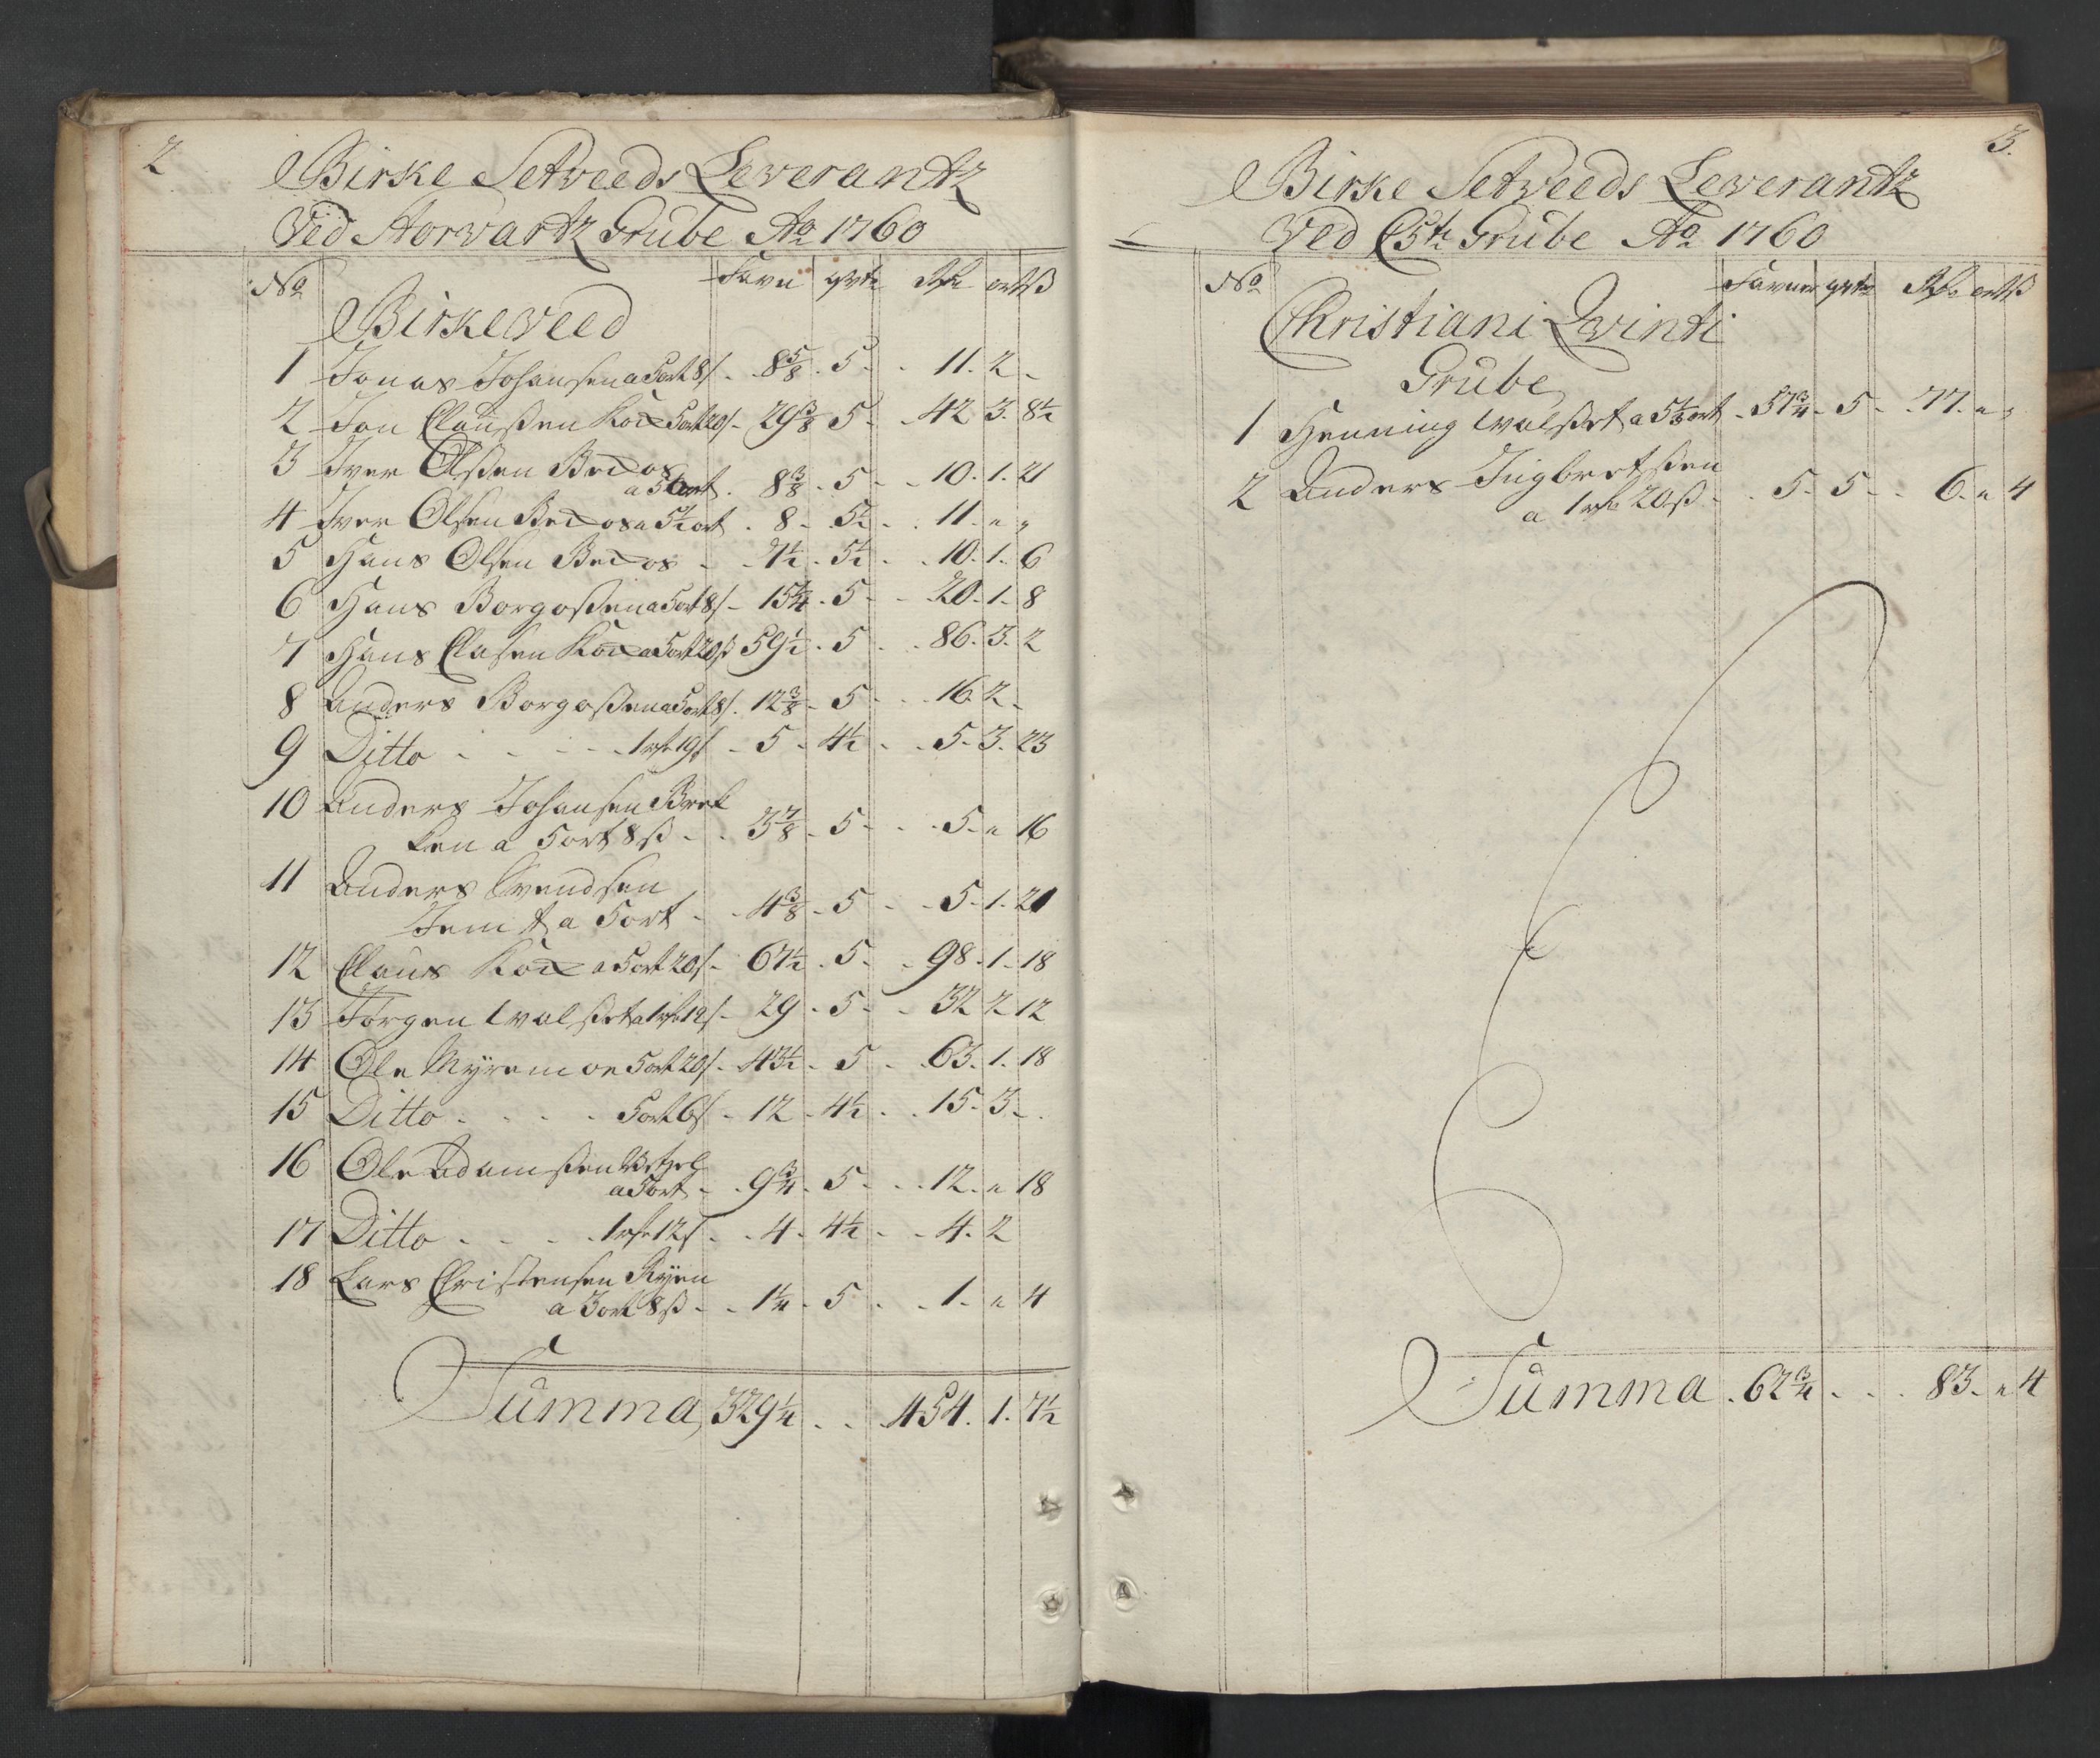 2
Birke Setveeds Leverantz
Ved Storvartz Grube Ao 1760
No Favn qvtr Rdr ort ß
Birkeveed
1 Jonas Johansen a 5ort 8ß - 8 5/8 - 5 - - 11. 2 -
2 Jon Claußen Kox 5ort 20ß - 29 3/8 5 - - 42 3. 8 1/2
3 Iver Olßen Bexos
a 5 ort. 8 3/8 - 5 - - 10. 1. 21
4 Iver Olsen Bexos a 5 1/2 ort - 8 - 5 1/2 - - 11. " "
5 Hans Olsen Bexos - - 7 1/2 - 5 1/2 - - 10. 1. 6
6 Hans Borgoßen a 5ort 8ß - 15 1/4 - 5 - - 20. 1. 8
7 Hans Clasen Kox a 5ort 20ß 59 1/2 - 5 - - 86. 3. 2
8 Anders Borgoßen a 5ort 8ß. 12 3/8 - 5 - - 16 2 -
9 Ditto - - - - 1 rdr 19ß - 5 - 4 1/2 - - 5. 3. 23
10 Anders Johansen Brek
ken a 5ort 8ß - - 3 7/8 - 5 - - 5. " 16
11 Anders Svendsen
Jemt a 5ort - - 4 3/8 - 5 - - 5. 1. 21
12 Claus Kox a 5ort 20ß - 67 1/2 - 5 - - 98. 1. 18
13 Jörgen Evalßet a 1 rdr 12ß - 29 - 5 - - 32 2 12
14 Ole Myremoe 5ort 20ß - 43 1/2 - 5 - 63. 1. 18
15 Ditto - - - - 5ort 6ß - 12 - 4 1/2 - - 15. 3 -
16 Ole Adamßen
a 5ort - - 9 3/4 - 5 - - 12. " 18
17 Ditto - - - - 1 rdr 12ß - - 4 - 4 1/2 - - 4. 2
18 Lars Christensen Ryen
a 3ort 8ß - - 1 1/4 - 5 - - 1. " 4
Summa 329 1/4 - - 454. 1. 7 1/2
3.
Birke Setveeds Leverantz
Ved C5te Grube Ao 1760
No Favner qvtr Rdr ort ß
Christiani Qvinti
Grube
1 Henning Evalßet a 5 1/3 ort - 57 3/4 - 5 - - 77. " "
2 Anders Ingbretßen
a 1 rdr 20ß - - 5 - 5 - - 6. " 4
Summa - 62 3/4 - - - 83. " 4